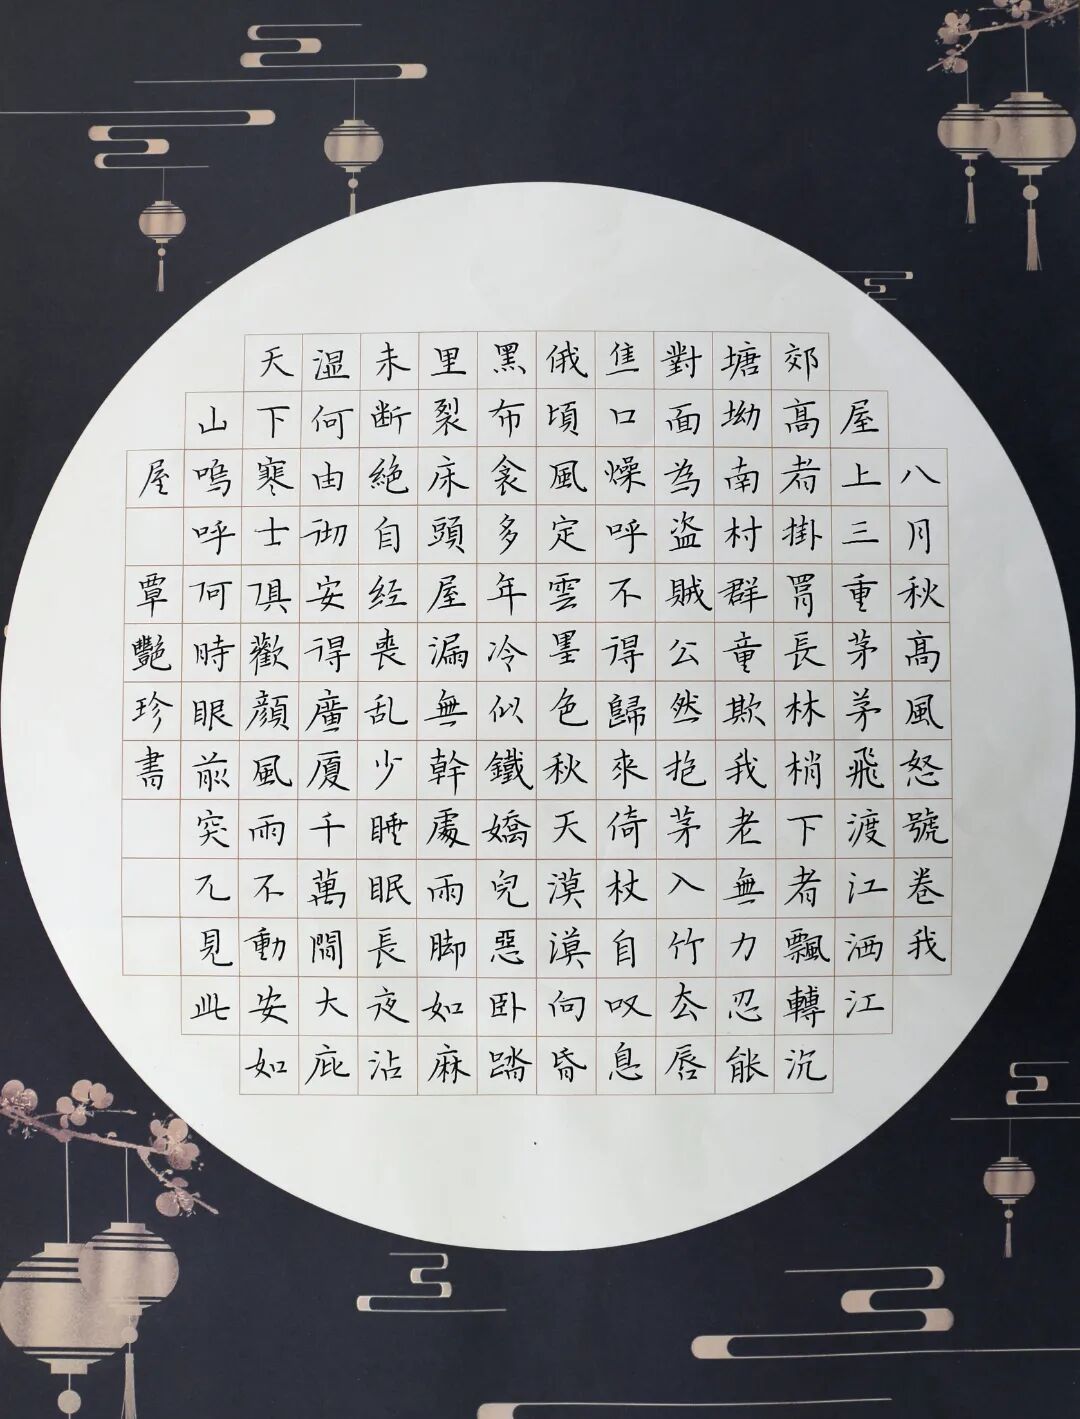 八月秋高風怒號卷我
屋上三重茅茅飛渡江洒江
郊高者掛罥長林梢下者飄轉沉
塘坳南村群童欺我老無力忍能
對面為盜賊公然抱茅入竹去唇
焦口燥呼不得歸來倚杖自叹息
俄頃風定雲墨色秋天漠漠向昏
黑布衾多年冷似鐵嬌兒惡卧踏
里裂床頭屋漏無幹處雨脚如麻
未断絶自经喪乱少睡眠長夜沾
湿何由彻安得廣厦千萬間大庇
天下寒士俱歡顔風雨不動安如
山嗚呼何時眼前突兀見此
屋 覃豔珍書